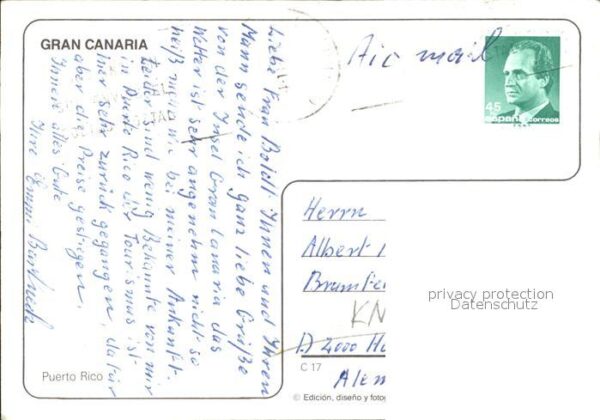 GRAN CANARIA
Air mail
45
españa correos
Liebe Frau Boldt Ihnen und Ihren
Mann sende ich ganz liebe Grüße
von der Insel Gran Canaria das
Wetter ist sehr angenehm nicht so
heiß wie bei meiner Ankunft.
Leider sind wenig Bekannte von mir
in Puerto Rico der Tourismus ist
hier sehr zurück gegangen, dafür
aber die Preise gestiegen.
Ihnen alles Gute
Ihre Emmi
Herrn
Albert
privacy protection
Datenschutz
KN
D 2000 H
C 17
Alem
Puerto Rico
© Edición, diseño y fotog